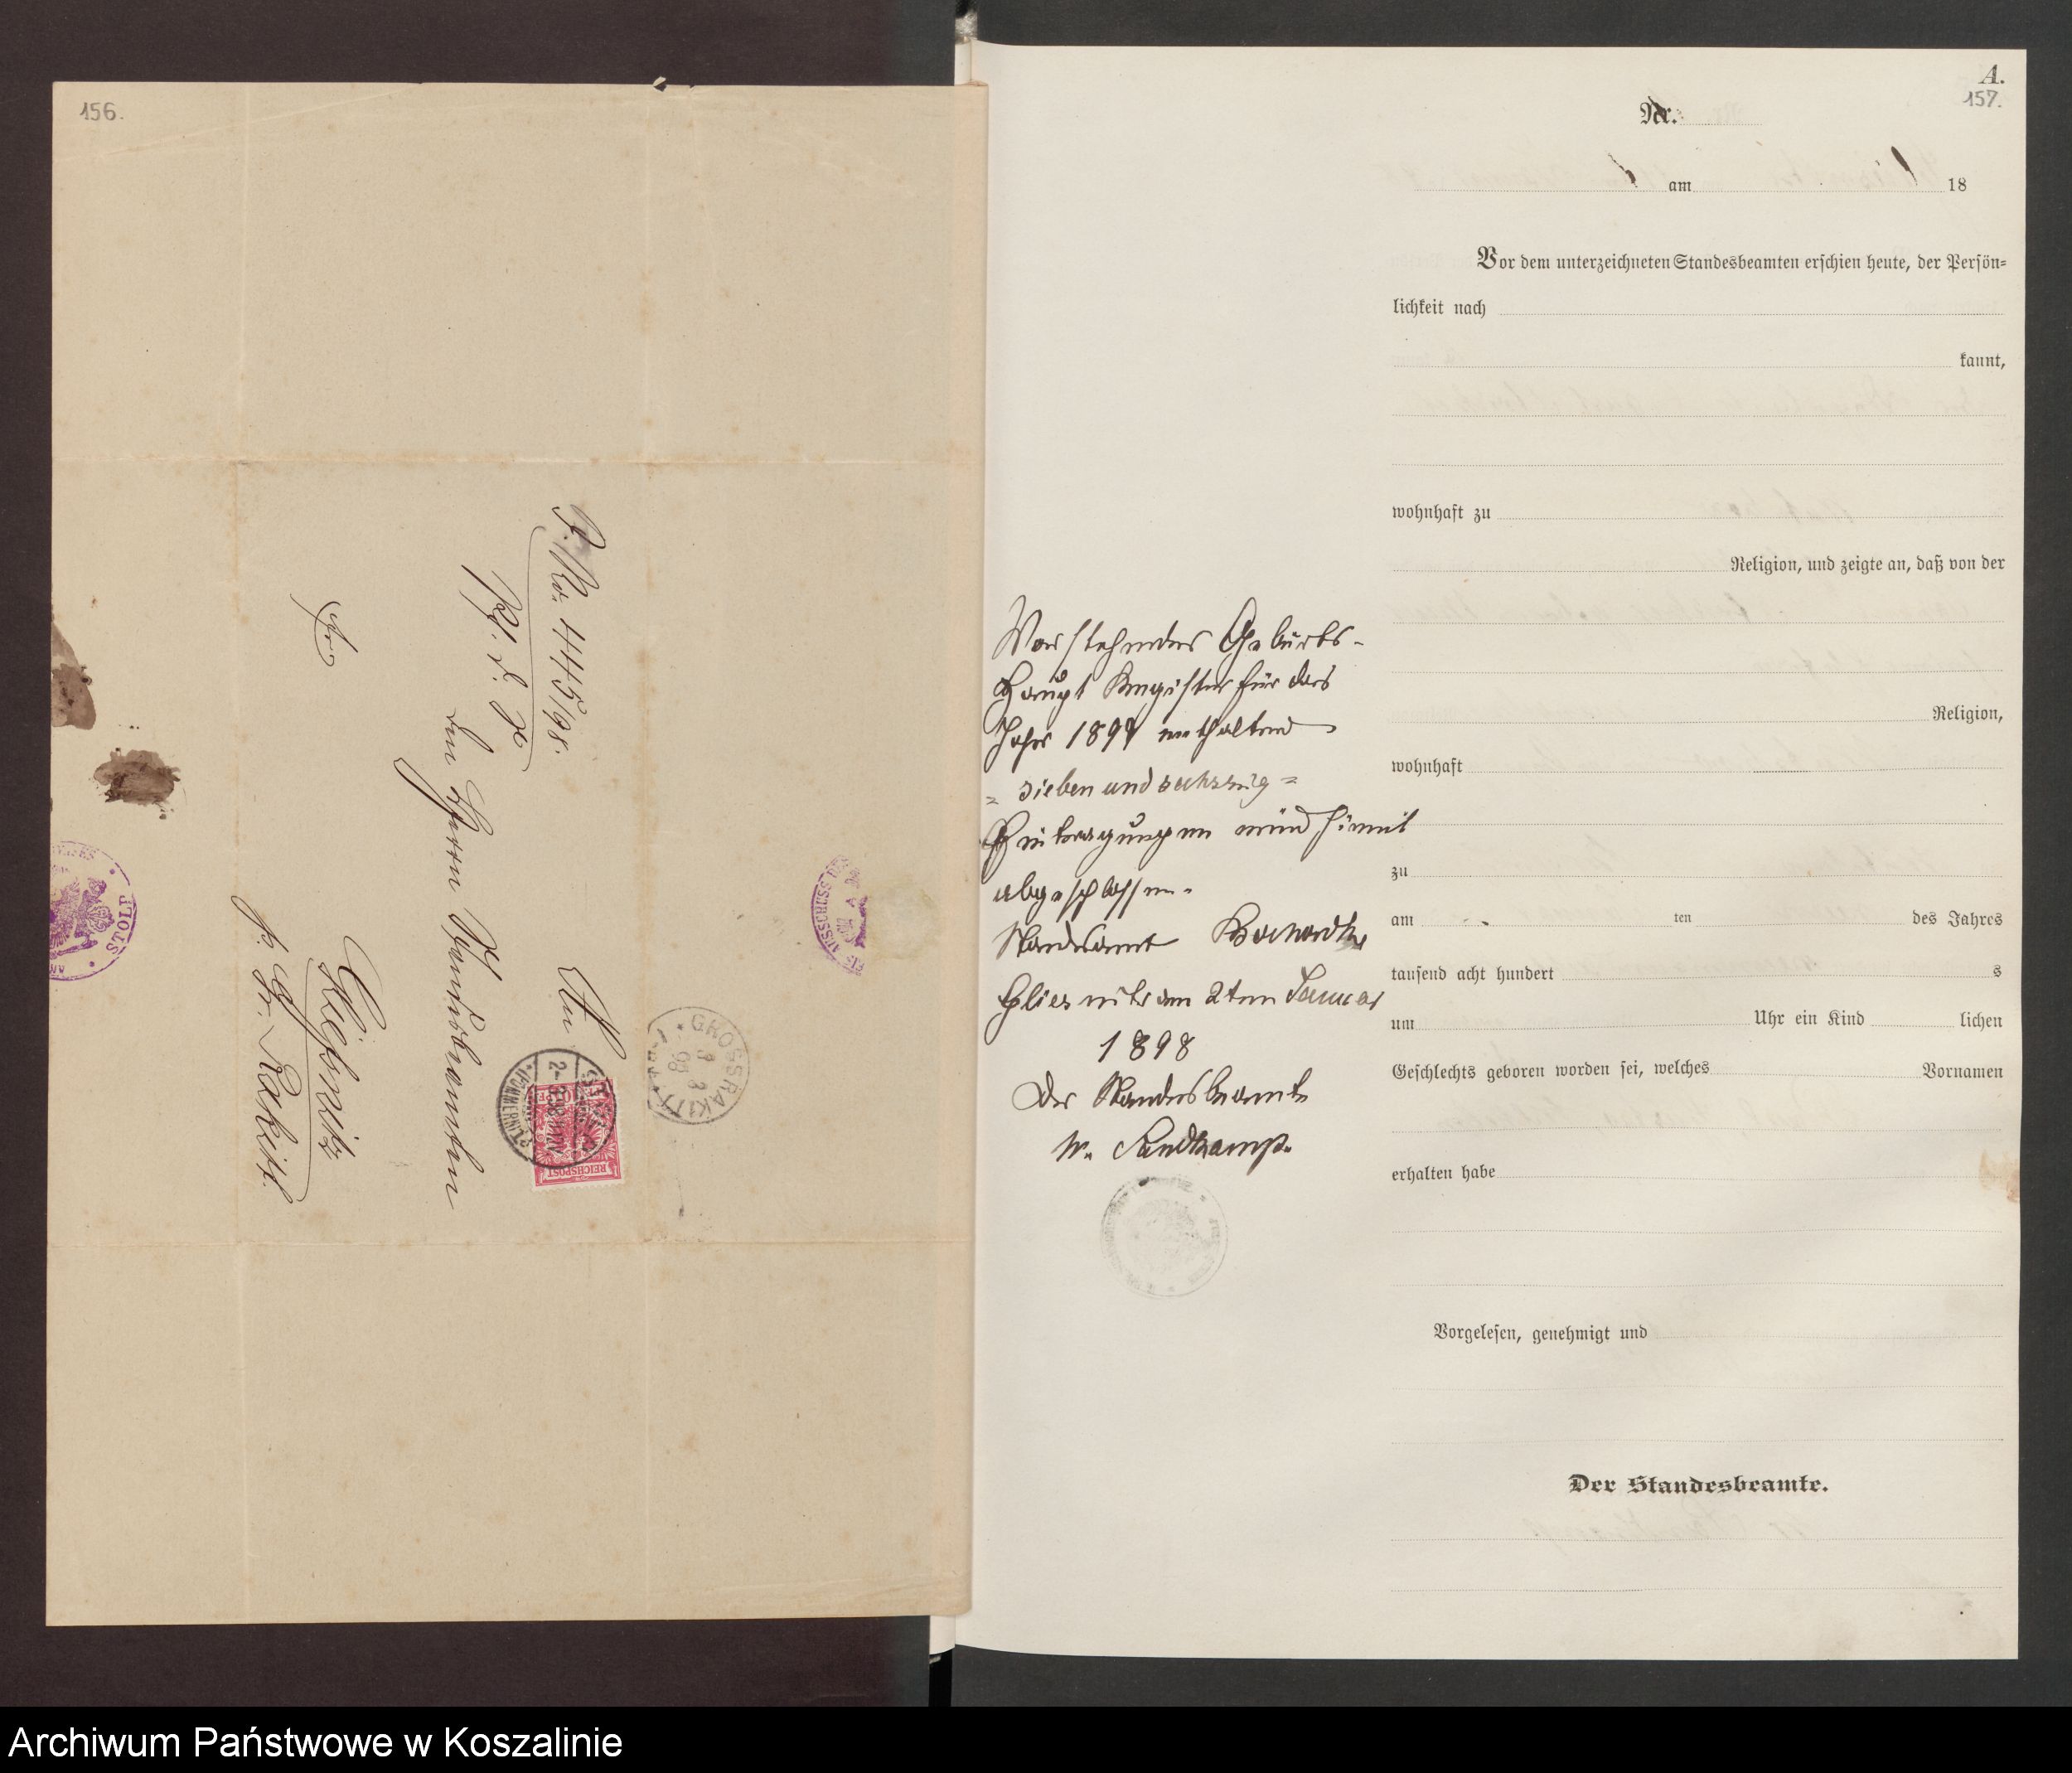 156.
P. No. 445/98.
Kr. A.
An
den Herrn Standesbeamten
Fr.
Gliesnitz
p. Gr. Rakitt.
STOLP
AUSSCHUSS DES
GROSSRAKITT
3 3
98
STOLP
(POMMERN)
2-3 98
REICHSPOST
A.
157.
Nr.
am 18
Vor dem unterzeichneten Standesbeamten erschien heute, der Persön-
lichkeit nach
kannt,
wohnhaft zu
Religion, und zeigte an, daß von der
Religion,
wohnhaft
zu
am ten des Jahres
tausend acht hundert s
um Uhr ein Kind lichen
Geschlechts geboren worden sei, welches Vornamen
erhalten habe
Vorgelesen, genehmigt und
Der Standesbeamte.
Vorstehendes Geburts-
Haupt Register für das
Jahr 1897 enthaltend
= sieben und sechszig =
Eintragungen wird hiermit
abgeschlossen.
Standesamt
Gliesnitz am 2ten Januar
1898
Der Standesbeamte
W. Sandkamp.
Archiwum Państwowe w Koszalinie